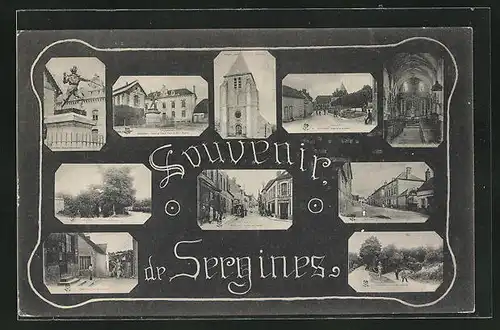 Souvenir
de Sergines.